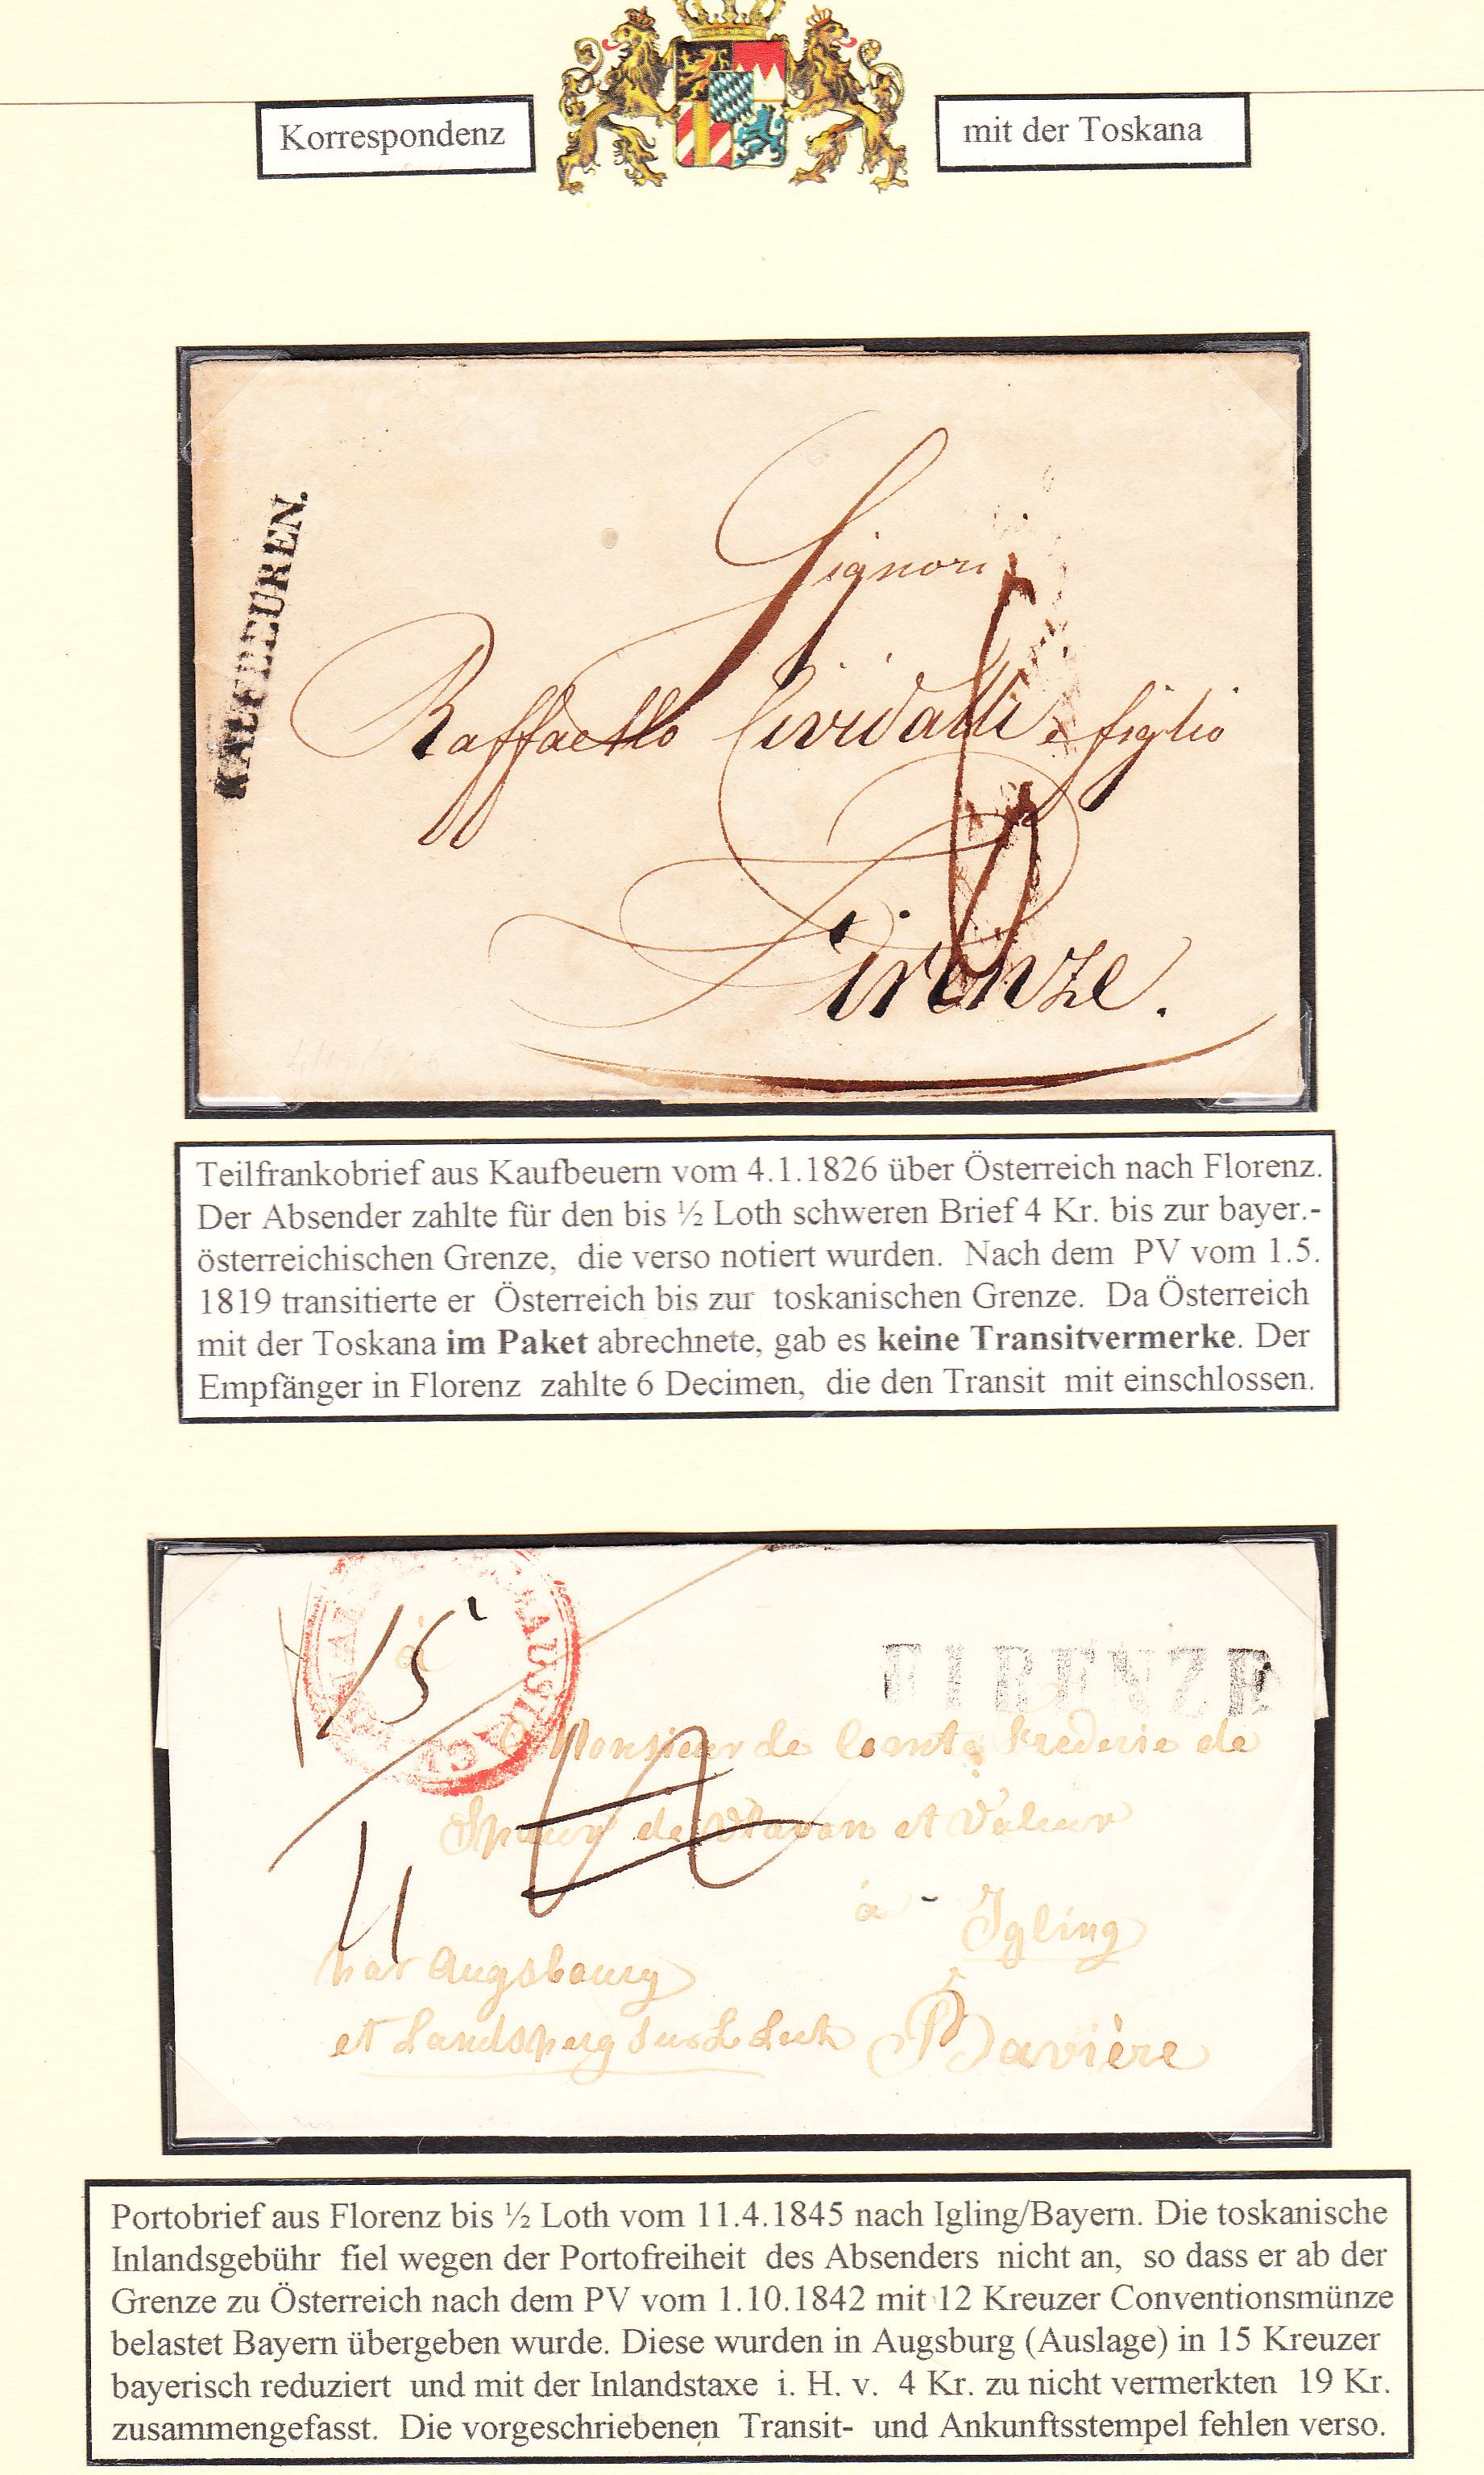 Korrespondenz
mit der Toskana
KAUFBEUREN.
Signori
Raffaello Cividalli e figlio
Firenze.
6
Teilfrankobrief aus Kaufbeuern vom 4.1.1826 über Österreich nach Florenz.
Der Absender zahlte für den bis ½ Loth schweren Brief 4 Kr. bis zur bayer.-
österreichischen Grenze, die verso notiert wurden. Nach dem PV vom 1.5.
1819 transitierte er Österreich bis zur toskanischen Grenze. Da Österreich
mit der Toskana im Paket abrechnete, gab es keine Transitvermerke. Der
Empfänger in Florenz zahlte 6 Decimen, die den Transit mit einschlossen.
15
à
FIRENZE
Monsieur de Comte Frederic de
de et Valeur
4
à Igling
par Augsbourg
et Landsperg sur L Lech Bavière
Portobrief aus Florenz bis ½ Loth vom 11.4.1845 nach Igling/Bayern. Die toskanische
Inlandsgebühr fiel wegen der Portofreiheit des Absenders nicht an, so dass er ab der
Grenze zu Österreich nach dem PV vom 1.10.1842 mit 12 Kreuzer Conventionsmünze
belastet Bayern übergeben wurde. Diese wurden in Augsburg (Auslage) in 15 Kreuzer
bayerisch reduziert und mit der Inlandstaxe i. H. v. 4 Kr. zu nicht vermerkten 19 Kr.
zusammengefasst. Die vorgeschriebenen Transit- und Ankunftsstempel fehlen verso.